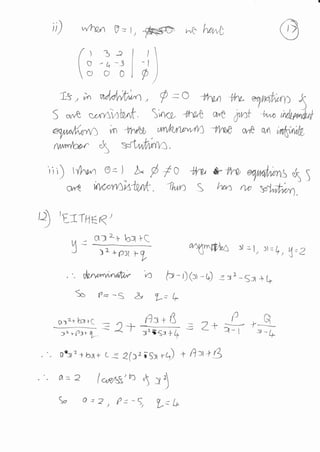 ii) when θ = 1, we have (17)
( 1 3 2 | 1 )
( 0 -4 -3 | -1 )
( 0 0 0 | ϕ )
If, in addition, ϕ = 0 then the equations of
S are consistent. Since there are just two independent
equations in three unknowns there are an infinite
number of solutions.
iii) When θ = 1 & ϕ ≠ 0 the equations of S
are inconsistent. Thus S has no solution.
12) 'EITHER'
y = (ax² + bx + c) / (x² + px + q) asymptotes x = 1, x = 4, y = 2
∴ denominator is (x-1)(x-4) = x² - 5x + 4
So p = -5 & q = 4
(ax² + bx + c) / (x² + px + q) ≡ 2 + (Ax + B) / (x² - 5x + 4) ≡ 2 + P / (x - 1) + Q / (x - 4)
∴ ax² + bx + c ≡ 2(x² - 5x + 4) + Ax + B
∴ a = 2 (coeffs'n of x²)
So a = 2, p = -5, q = 4